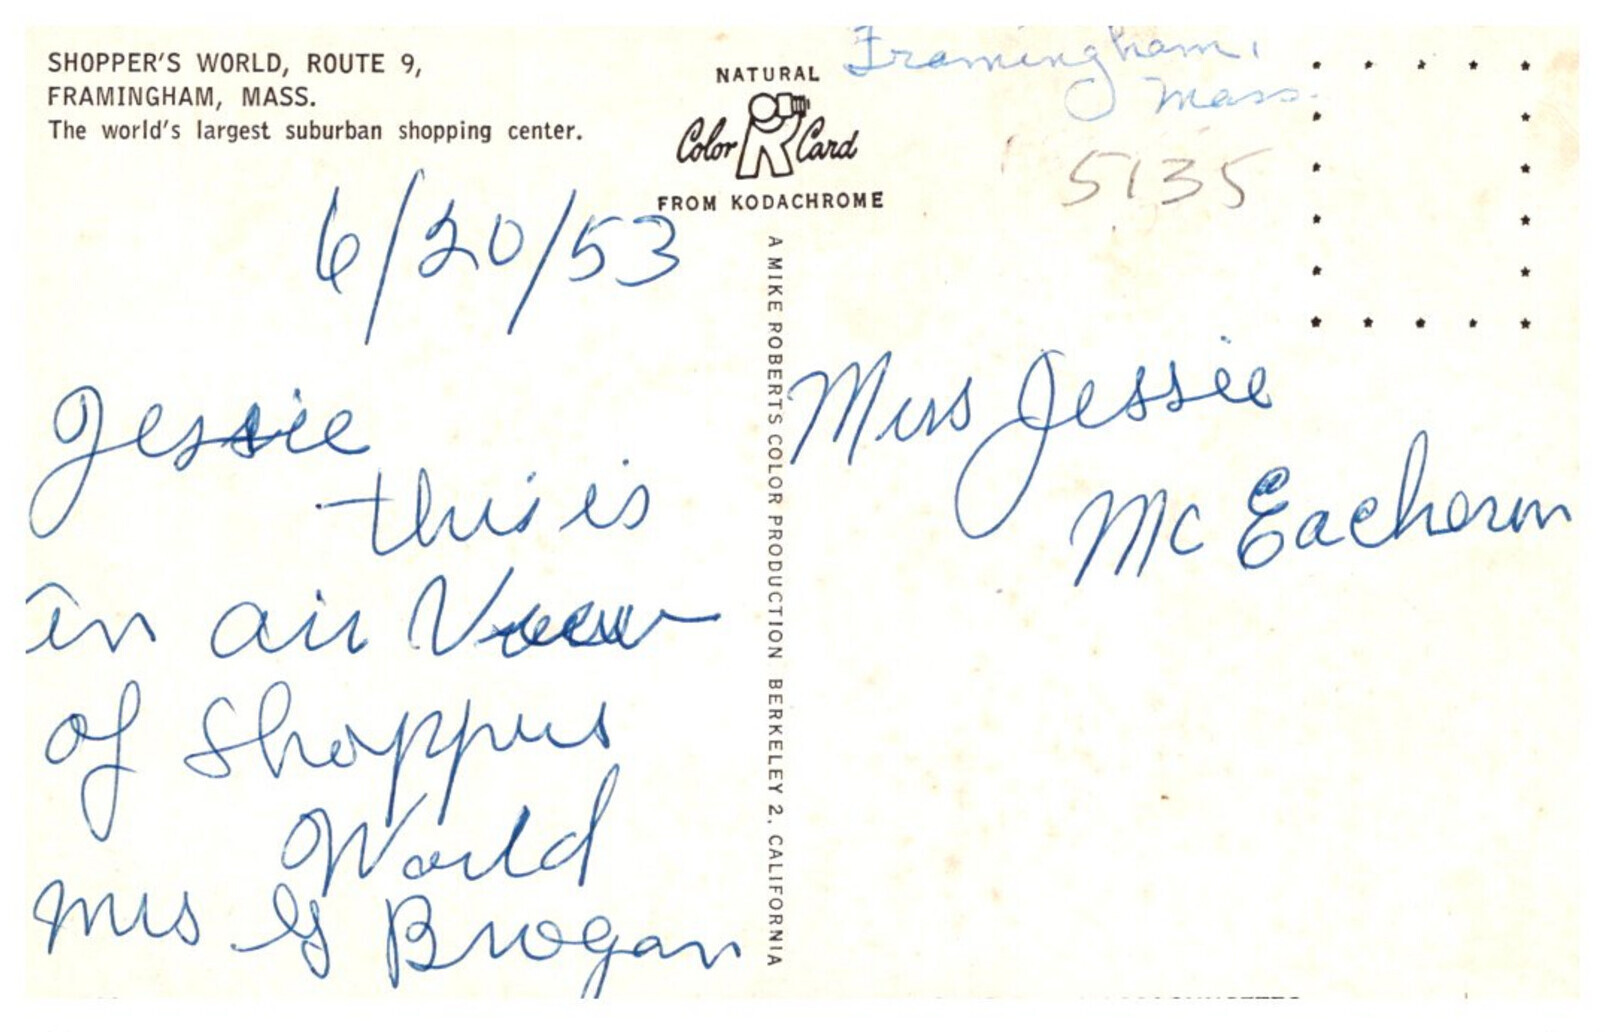 SHOPPER'S WORLD, ROUTE 9,
FRAMINGHAM, MASS.
The world's largest suburban shopping center.
NATURAL
Color Card
FROM KODACHROME
Framingham,
Mass.
5135
6/20/53
Jessie
this is
an air View
of Shoppers
World
Mrs G Brogan
A MIKE ROBERTS COLOR PRODUCTION BERKELEY 2, CALIFORNIA
Miss Jessie
Mc Eachern